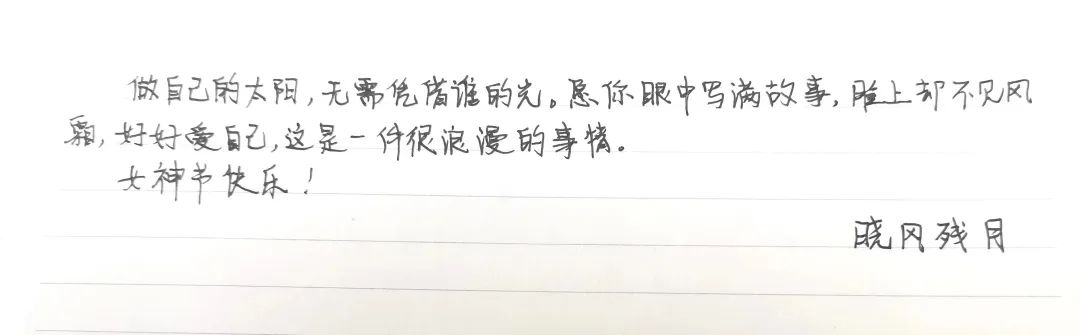 做自己的太阳,无需凭借谁的光。愿你眼中写满故事,脸上却不见风
霜,好好爱自己,这是一件很浪漫的事情。
女神节快乐!
晓风残月